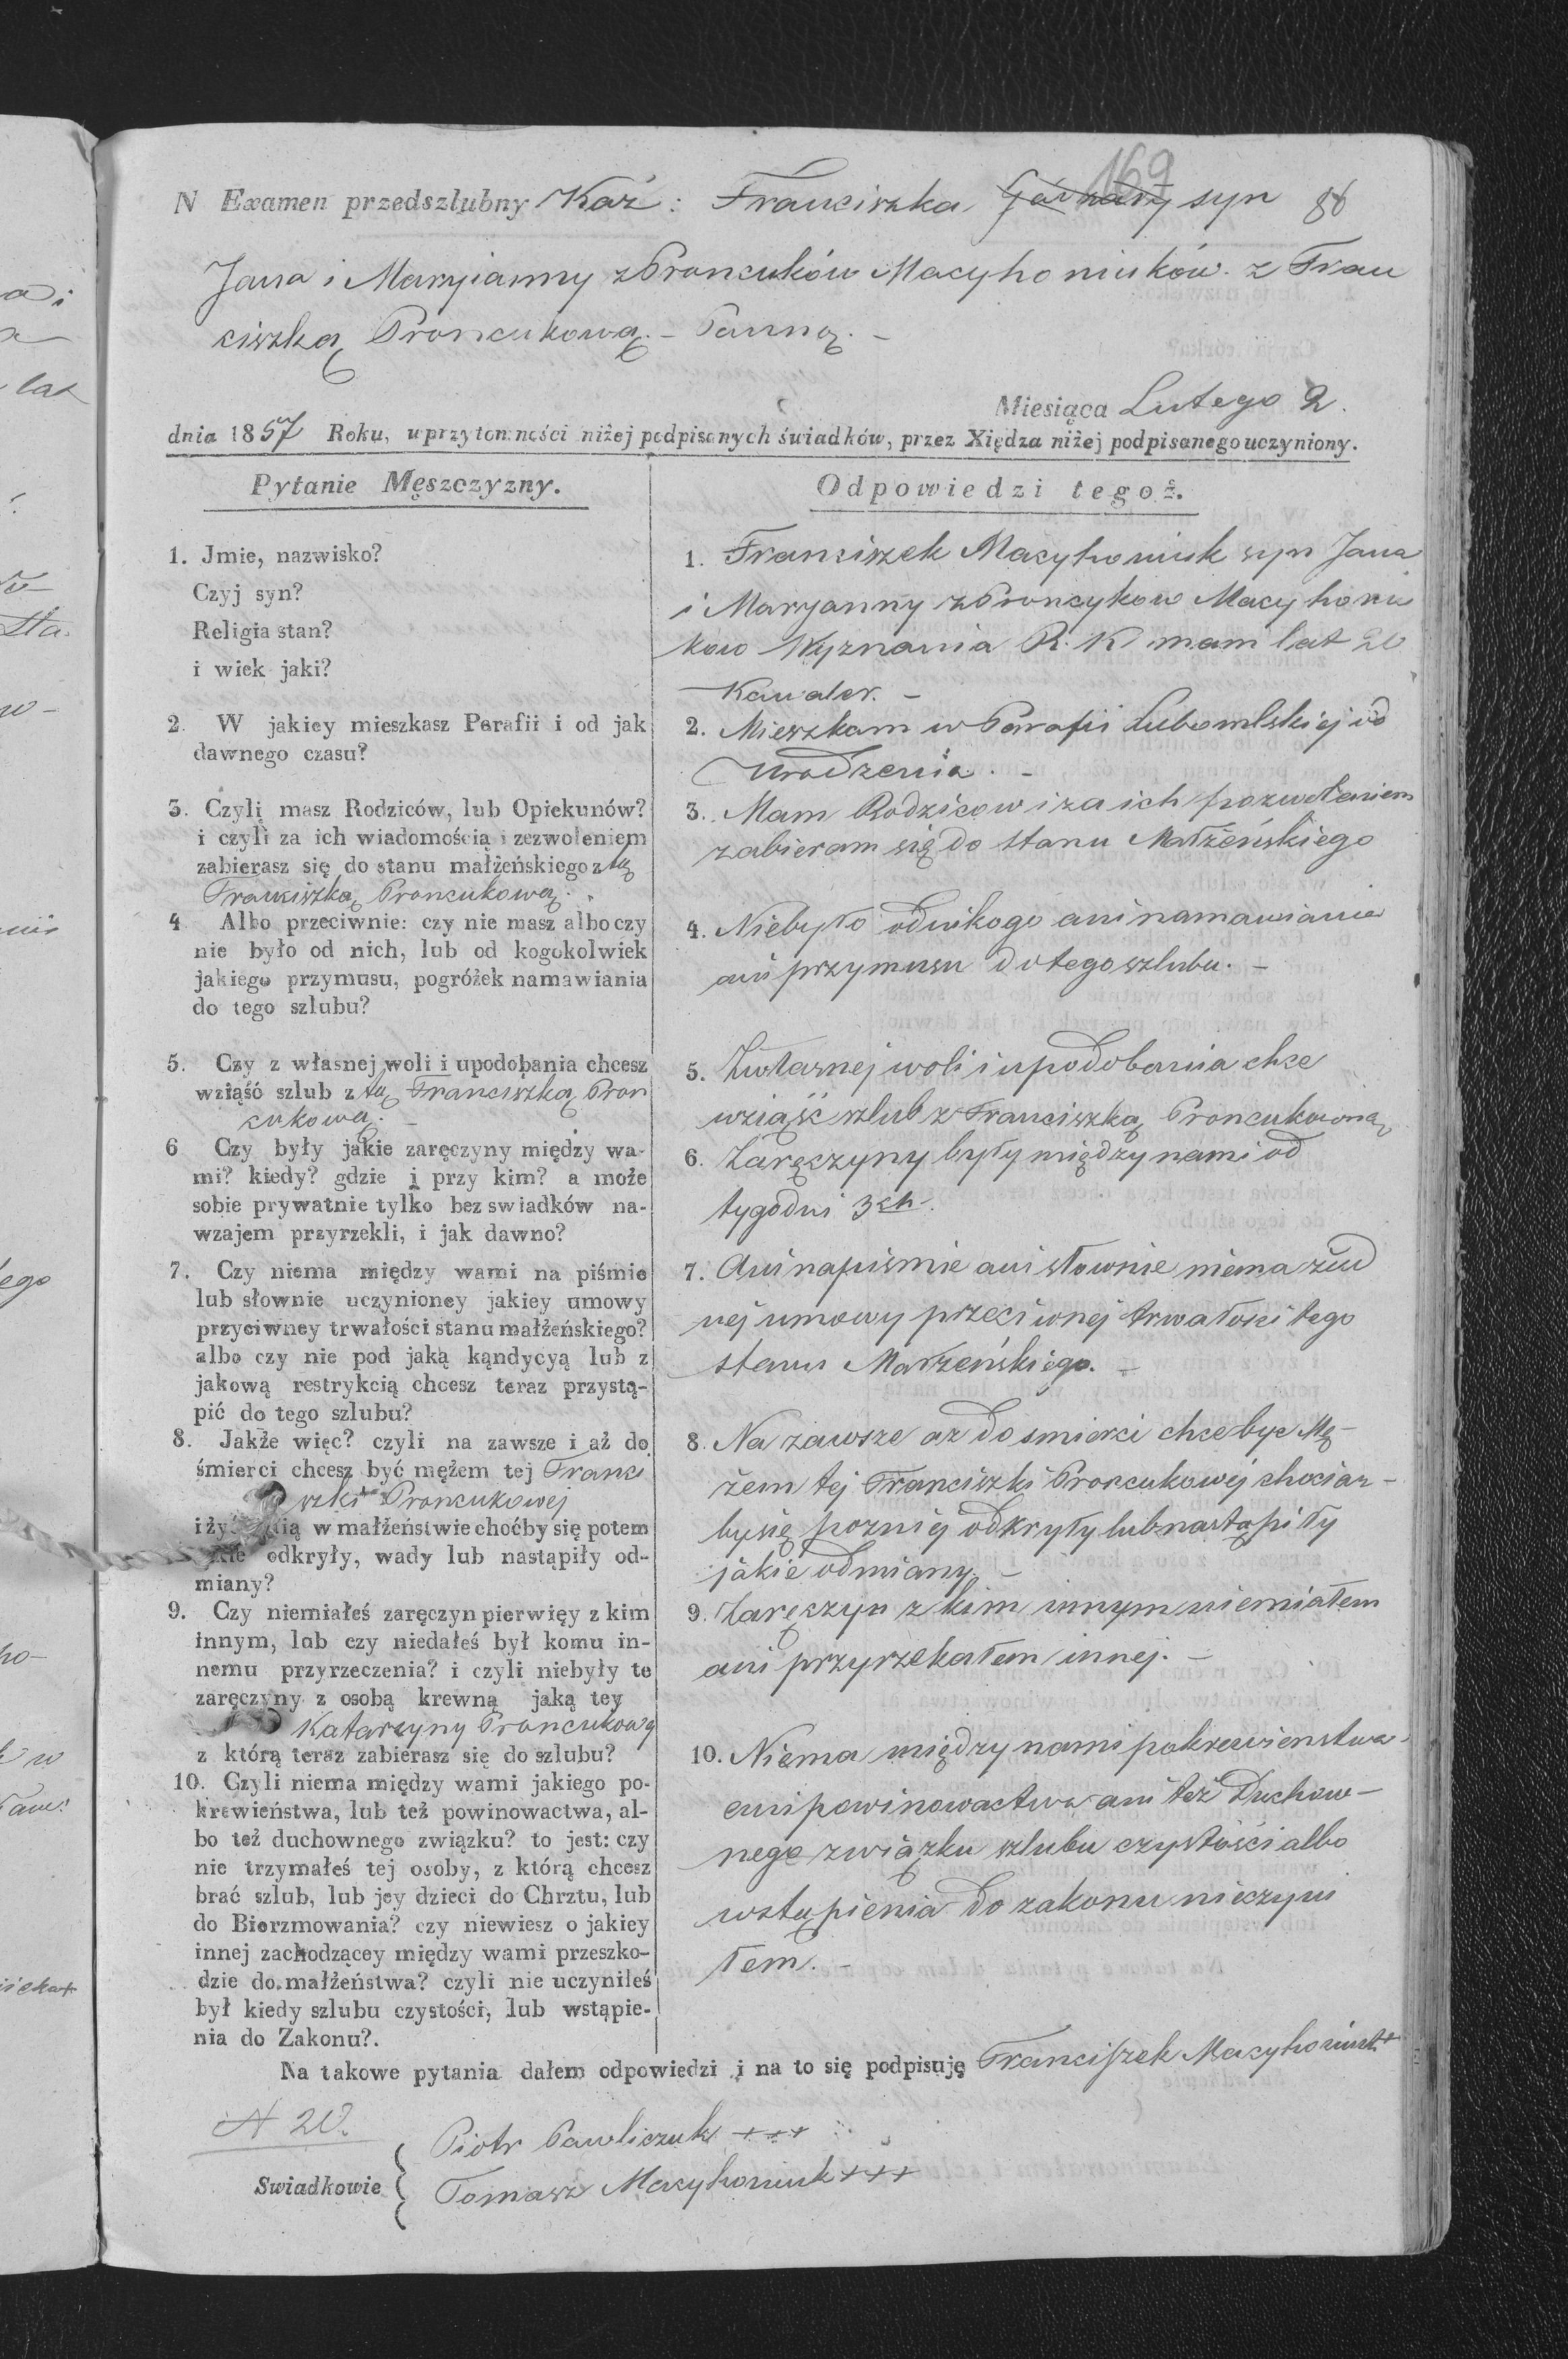 169
N Examen przedszlubny Kaź: Franciszka syn 86
Jana i Maryianny z Proncuków Macyhoniuków. z Fran
ciszką Proncukową. - Panną. -
Miesiąca Lutego 2.
dnia 1857 Roku, w przytomności niżej podpisanych świadków, przez Xiędza niżej podpisanego uczyniony.
Pytanie Męszczyzny.
Odpowiedzi tegoż.
1. Jmie, nazwisko?
Czyj syn?
Religia stan?
i wiek jaki?
1. Franciszek Macyhoniuk syn Jana
i Maryanny z Proncykow Macyhoniu
kow Wyznania R. K mam lat 20
Kawaler. -
2. W jakiey mieszkasz Parafii i od jak
dawnego czasu?
2. Mieszkam w Parafii Lubomlskiej od
urodzenia. -
3. Czyli masz Rodziców, lub Opiekunów?
i czyli za ich wiadomością i zezwoleniem
zabierasz się do stanu małżeńskiego z tą
Franciszką Proncukową.
3. Mam Rodzicow i za ich pozwoleniem
zabieram się do stanu Małżeńskiego
4 Albo przeciwnie: czy nie masz albo czy
nie było od nich, lub od kogokolwiek
jakiego przymusu, pogróżek namawiania
do tego szlubu?
4. Niebyło od nikogo ani namawiania
ani przymusu do tego szlubu. -
5. Czy z własnej woli i upodobania chcesz
wziąść szlub z tą Franciszką Pron
cukową. -
5. Zwłasnej woli i upodobania chce
wziąść szlub z Franciszką Proncukowną
6 Czy były jakie zaręczyny między wa-
mi? kiedy? gdzie i przy kim? a może
sobie prywatnie tylko bez swiadków na-
wzajem przyrzekli, i jak dawno?
6. Zaręczyny były między nami od
tygodni 3ch.
7. Czy niema między wami na piśmie
lub słownie uczynioney jakiey umowy
przyciwney trwałości stanu małżeńskiego?
albo czy nie pod jaką kąndycyą lub z
jakową restrykcią chcesz teraz przystą-
pić do tego szlubu?
7. Ani napismie ani słownie niema żad
nej umowy przeciwnej trwałosci tego
stanu Małżeńskiego. -
8. Jakże więc? czyli na zawsze i aż do
śmierci chcesz być mężem tej Franci
szki Proncukowej
i żyć z nią w małżeństwie choćby się potem
jakie odkryły, wady lub nastąpiły od-
miany?
8. Na zawsze aż do smierci chce byc Mę-
żem tej Franciszki Proncukowéj chociaz-
by się poznij odkryły lub nastąpiły
jakie odmiany. -
9. Czy niemiałeś zaręczyn pierwięy z kim
innym, lub czy niedałeś był komu in-
nemu przyrzeczenia? i czyli niebyły te
zaręczyny z osobą krewną jaką tey
Katarzyny Proncukowy
z którą teraz zabierasz się do szlubu?
9. Zaręczyn z kim innym niemiałem
ani przyrzekałem innej. -
10. Czyli niema między wami jakiego po-
krewieństwa, lub też powinowactwa, al-
bo też duchownego związku? to jest: czy
nie trzymałeś tej osoby, z którą chcesz
brać szlub, lub jey dzieci do Chrztu, lub
do Bierzmowania? czy niewiesz o jakiey
innej zachodzącey między wami przeszko-
dzie do małżeństwa? czyli nie uczyniłeś
był kiedy szlubu czystości, lub wstąpie-
nia do Zakonu?.
10. Niema między nami pokrewienstwa
ani powinowactwa ani też Duchow-
nego związku szlubu czystości albo
wstąpienia do zakonu nieczyni
łem. -
Na takowe pytania dałem odpowiedzi i na to się podpisuję Franciszek Macyhoniuk +
N 20.
Swiadkowie
Piotr Pawliczuk +++
Tomasz Macyhoniuk +++